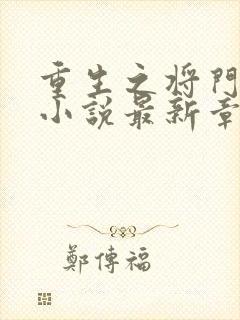 重生之将門
小说最新章
鄭傳福